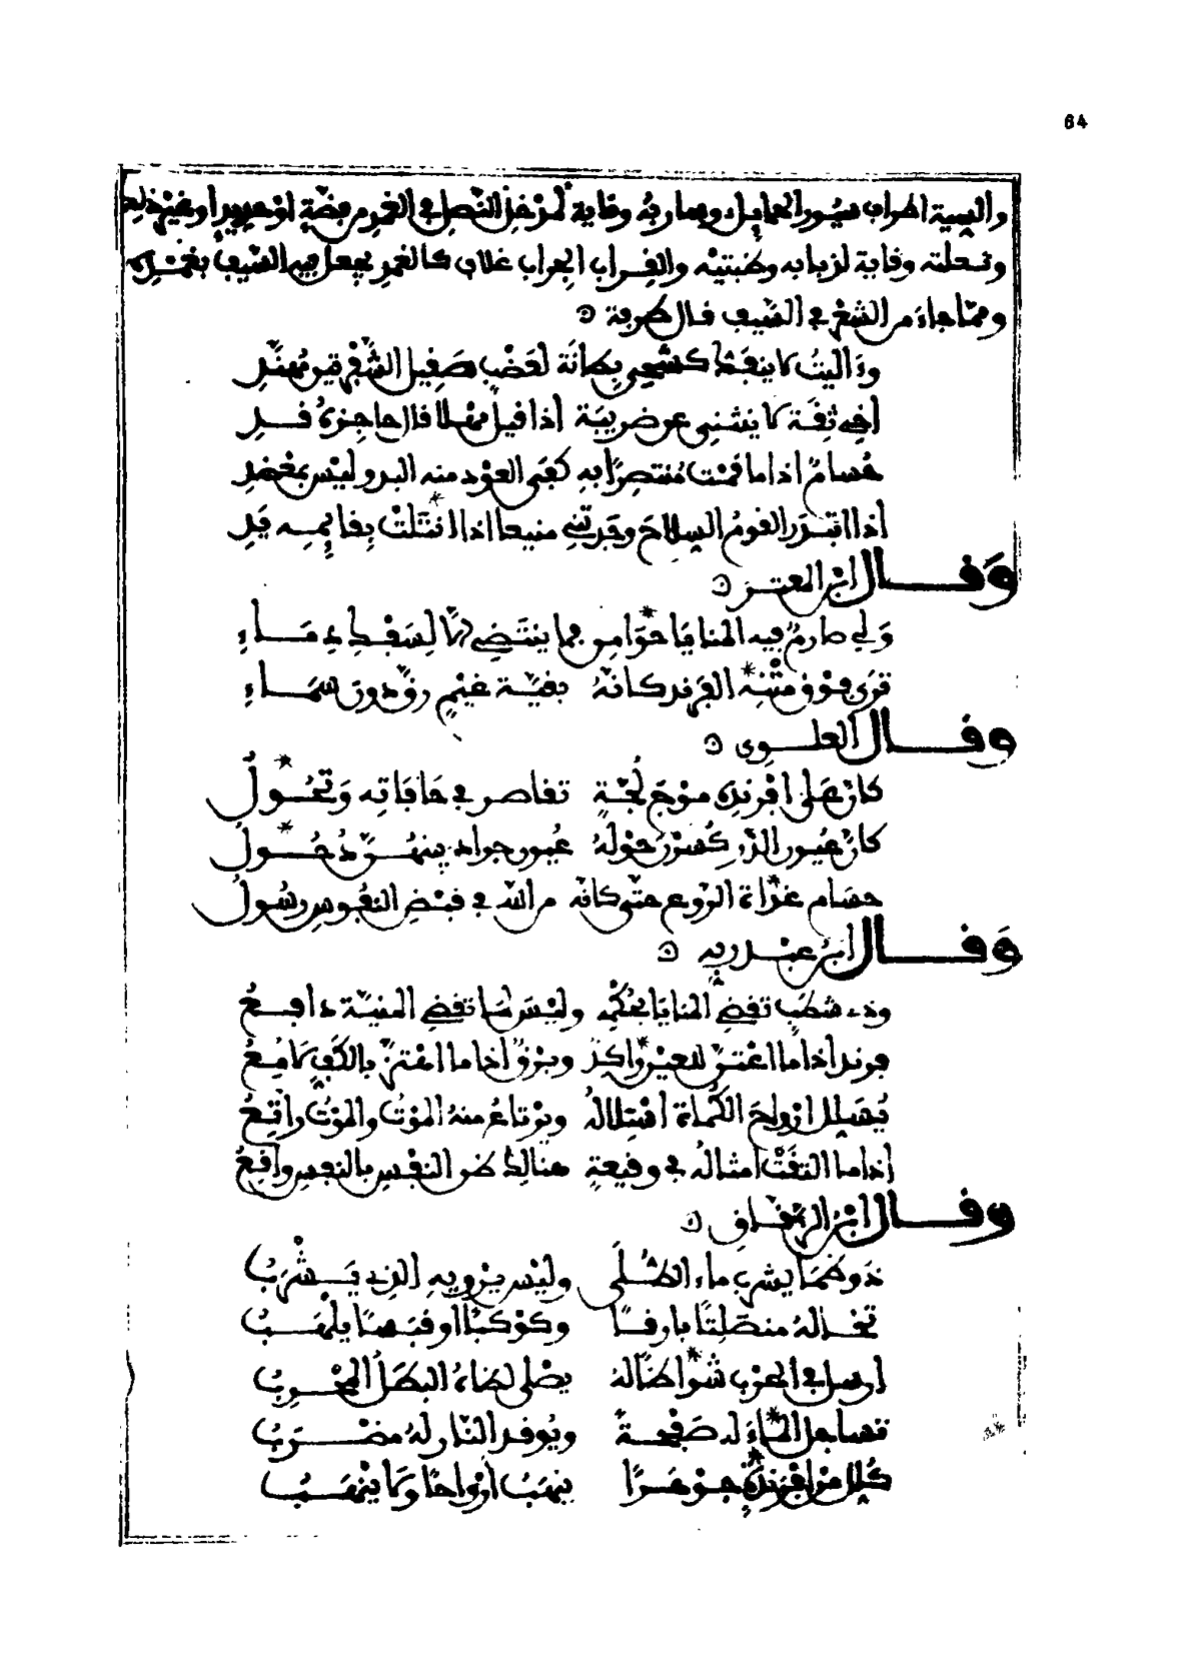 64
والسية اطراف سيور الحمايل وحماربه وقاية لمدخل النصل في الغمد من فضة او حديد او غير ذلك
ونعلته وقاية لذبابه وضبتيه والقراب الجراب غلاف كالغمد يجعل فيه السيف بغمده
ومما جاء من الشعر في السيف قال طرفة
وءاليت لا ينفك كشحي بطانة لعضب صقيل الشفرتين مهند
أخي ثقة لا ينثني عن ضريبة إذا قيل مهلا قال حاجزه قد
حسام إذا ما قمت منتصرا به كفى العود منه البدو ليس بمعضد
إذا ابتدر القوم السلاح وجدتني منيعا إذا ابتلت بقايمه يد
وقال ابن المعتز
ولي صارم فيه المنايا كوامن فما ينتضى إلا لسفك دماء
ترى فوق متنه الفرند كانه بقية غيم رق دون سماء
وقال العلوي
كان على افرنده موج لجة تقاصر في حافاته وتحول
كان عيون الذر كسرن حوله عيون جراد بينهن ذحول
حسام غداة الروع حتى كانه من الله في قبض النفوس رسول
وقال ابن عبد ربه
وذي شطب تقضي المنايا بحكمه وليس لما تقضي المنية دافع
فرند إذا ما اعتن للعين راكد وبرق إذا ما اهتز بالكف لامع
يسلل ارواح الكماة انسلاله ويرتاع منه الموت والموت رائع
إذا ما التقت أمثاله في وقيعة هنالك ظن النفس بالنفس واقع
وقال ابن الزقاق
ذو ظما يشرب ماء الطلى وليس يرويه الذي يشرب
تخاله منصلتا بارقا وكوكبا او قبسا يلهب
ارسل في الحرب شواظا له يصلى لظاه البطل المحرب
تساجل الماء له صفحة ويوقد النار له مضرب
كلل من افرنده جوهرا ينهب أرواحا ولا ينهب